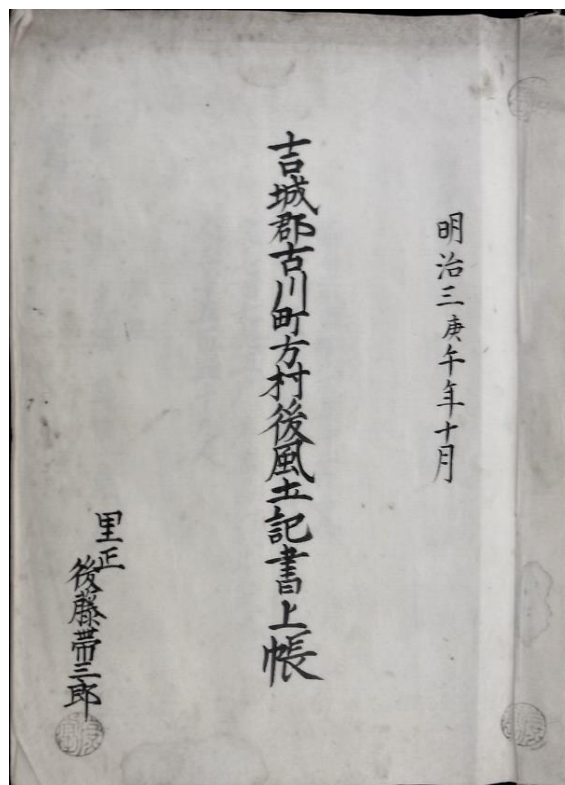 明治三庚午年十月
吉城郡古川町方村後風土記書上帳
里正
後藤帯三郎